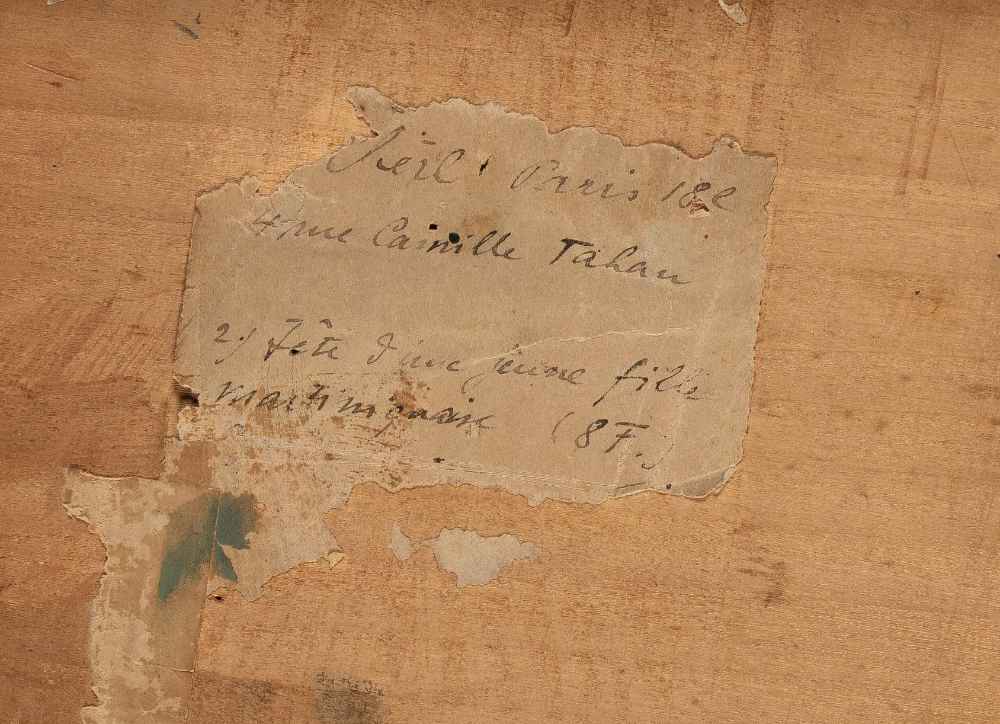 Paris 18e
4 rue Camille Tahan
2) Tête d'une jeune fille
martiniquaise (8 F.)